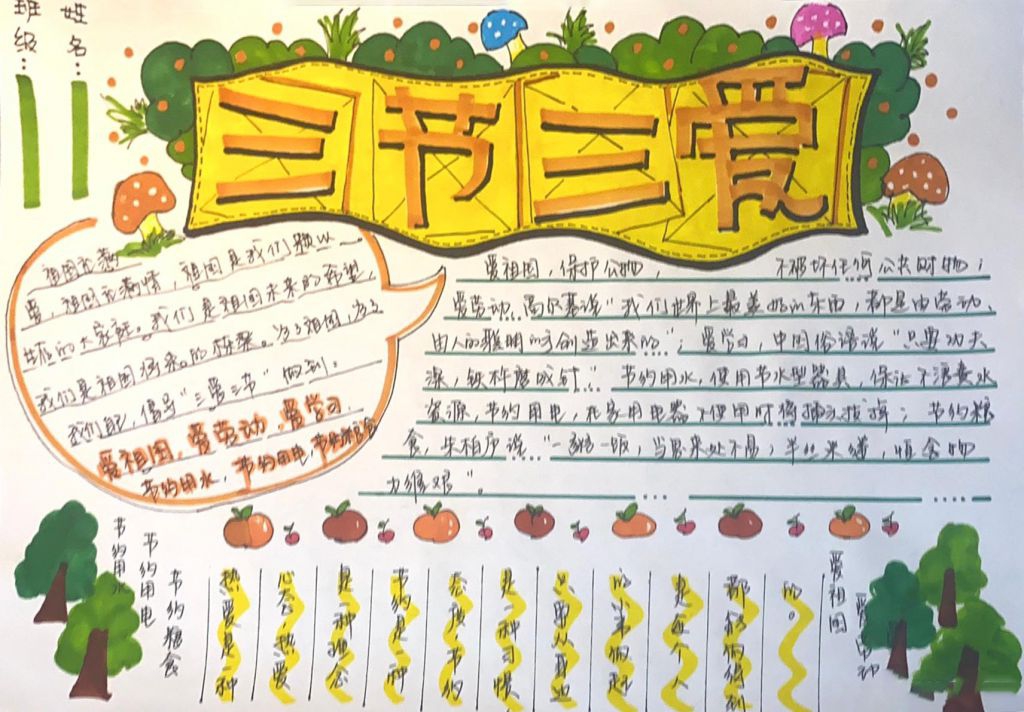 姓名：
班级：
三节三爱
祖国我们赖以
爱，祖国
的大家庭。我们是祖国未来的希望，
我们是祖国将来的栋梁。为了祖国，为了
我们自己，倡导“三爱三节”做到：
爱祖国，爱劳动，爱学习．
节约用水，节约用电，节约粮食
爱祖国，保护公物， 不破坏任何公共财物；
爱劳动，高尔基说“我们世界上最美好的东西，都是由劳动、
由人的聪明的手创造出来的”；爱学习，中国俗语说“只要功夫
深，铁杵磨成针”。节约用水，使用节水型器具，保证不浪费水
资源，节约用电，在家用电器不使用时将插头拔掉；节约粮
食，朱柏庐说“一粥一饭，当思来处不易；半丝半缕，恒念物
力维艰”。
节约用水
节约用电
节约粮食
热爱是一种
心态，热爱
是一种理念
节约是一种
态度，节约
是一种习惯
只要从身边
的小事做起
是每个人
都能做得到
的。
爱祖国
爱劳动